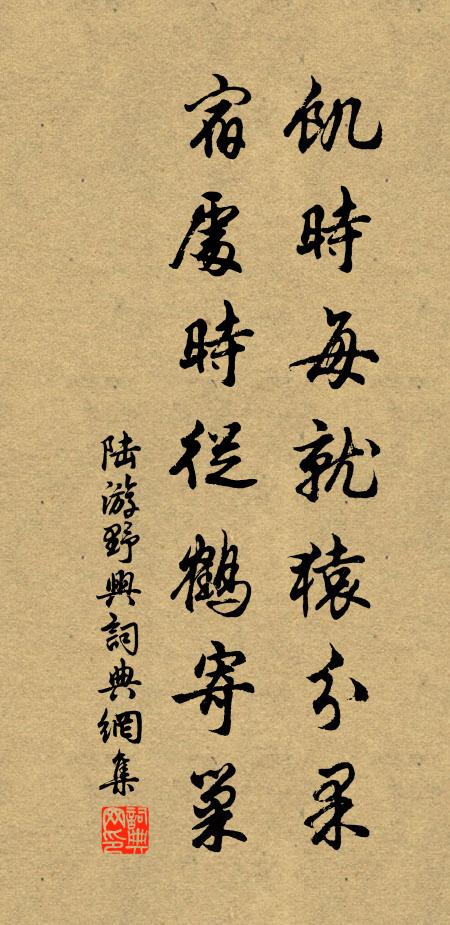 飢時每就猿分果
宿處時從鶴寄巢
陆游野興詞典網集
詞典網印